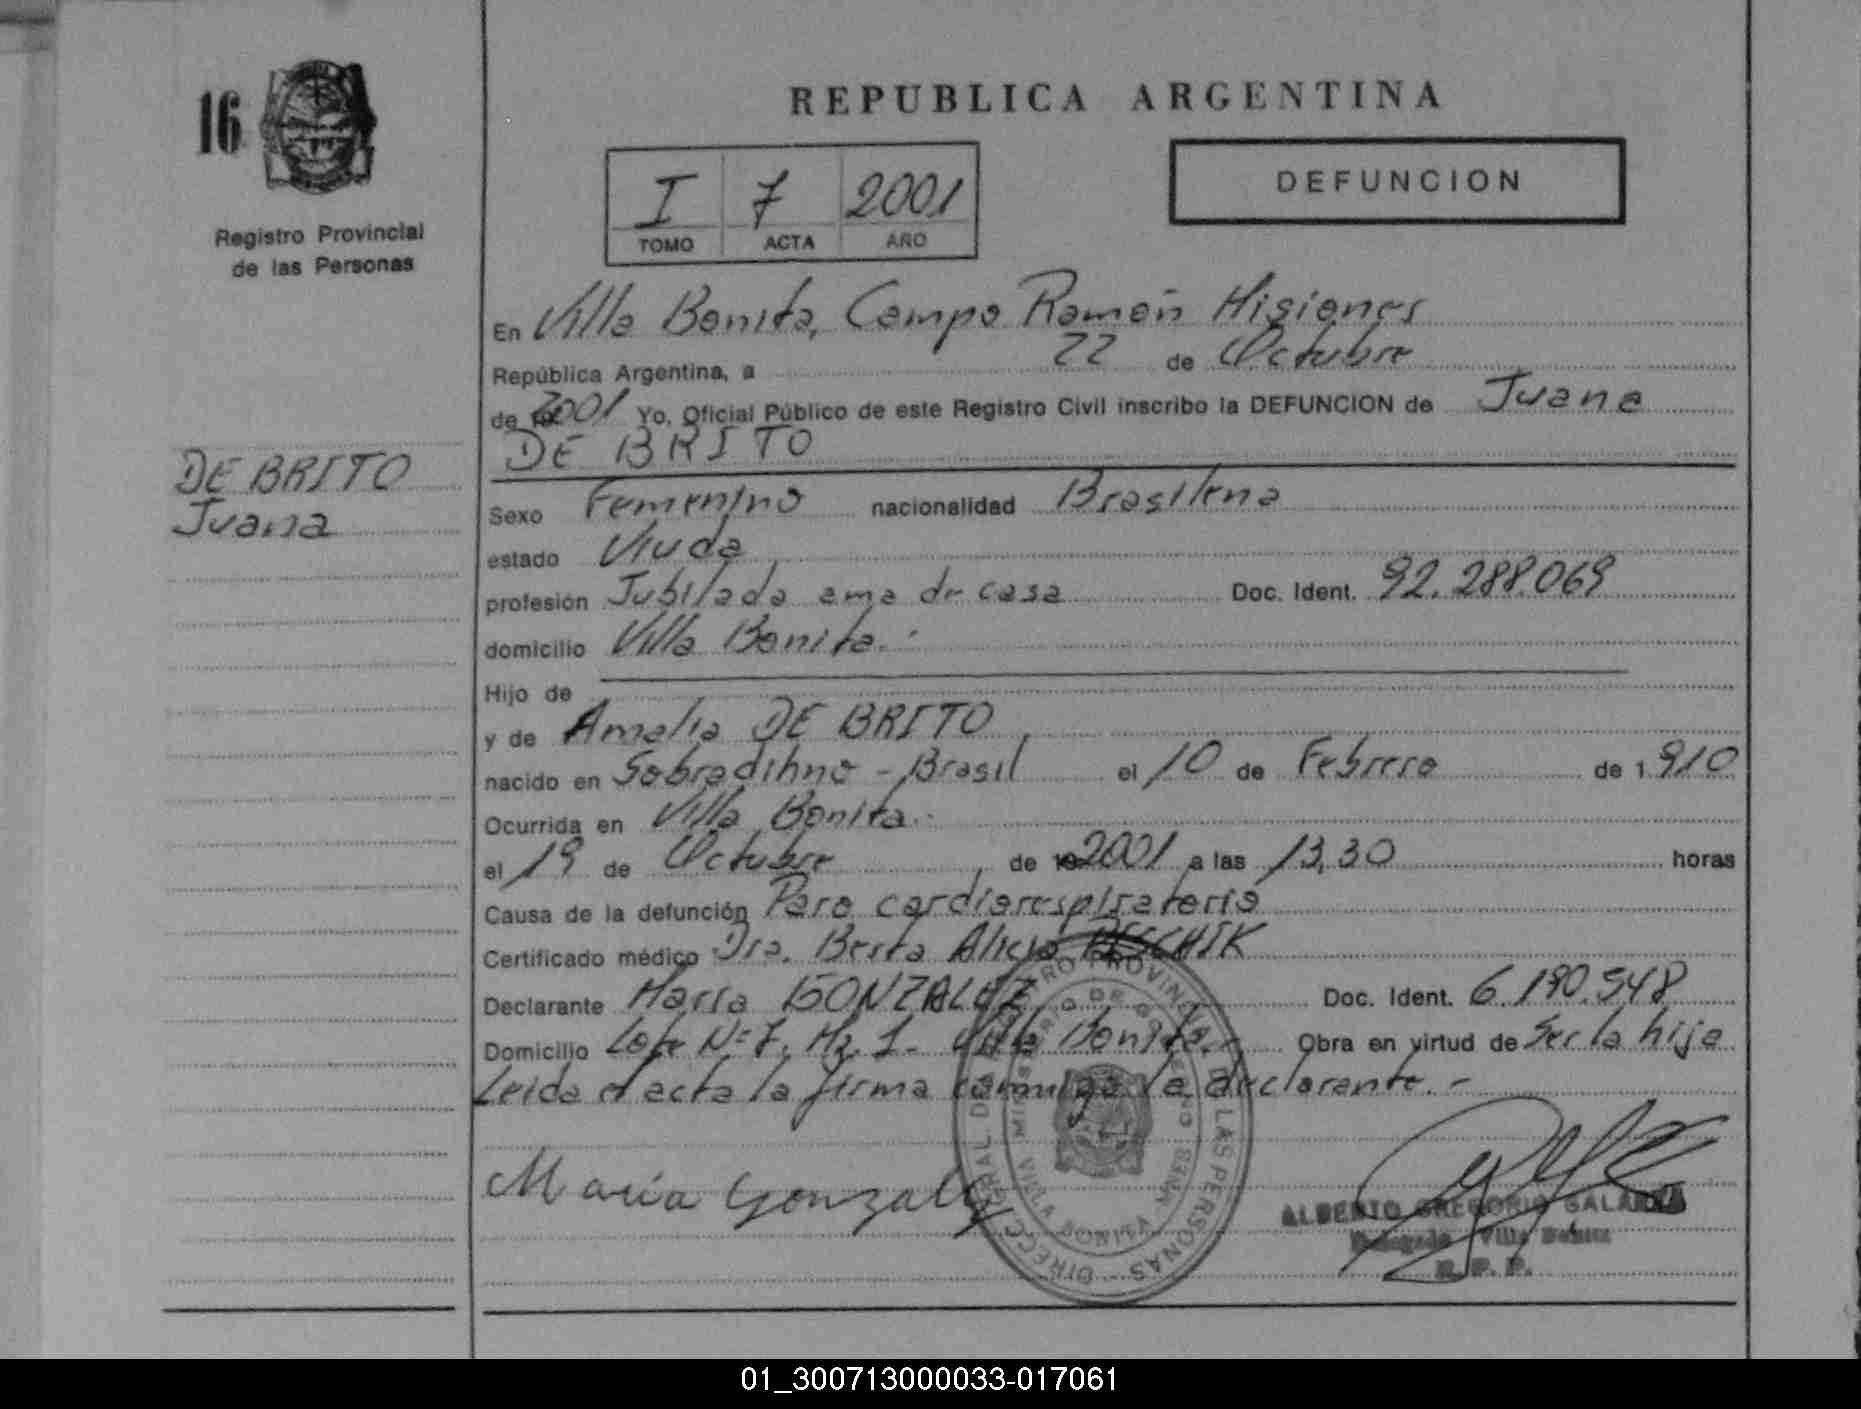 16
Registro Provincial
de las Personas
DE BRITO
Juana
REPUBLICA ARGENTINA
I 7 2001
TOMO ACTA AÑO
DEFUNCION
En Villa Bonita, Campo Ramón Misiones
República Argentina, a 22 de Octubre
de 2001 Yo, Oficial Público de este Registro Civil inscribo la DEFUNCION de Juana
DE BRITO
Sexo Femenino nacionalidad Brasilena
estado Viuda
profesión Jubilada ama de casa Doc. Ident. 92.288.069
domicilio Villa Bonita.
Hijo de
y de Amalia DE BRITO
nacido en Sobradihno - Brasil el 10 de Febrero de 1.910
Ocurrida en Villa Bonita.
el 19 de Octubre de 2001 a las 13,30 horas
Causa de la defunción Paro cardiorespiratorio
Certificado médico Dra. Berta Alicia
Declarante María GONZALEZ Doc. Ident. 6.190.548
Domicilio Lote Nº 7, Mz. 1 - Villa Bonita. Obra en virtud de Ser la hija
Leida el acta la firma conmigo la declarante. -
María Gonzalez
DIRECC. GRAL. DEL REGISTRO PROVINCIAL DE LAS PERSONAS
MINISTERIO DE GOBIERNO
VILLA BONITA
ALBERTO GREGORIO GALARZA
Delegado Villa Bonita
R. P. P.
01_300713000033-017061